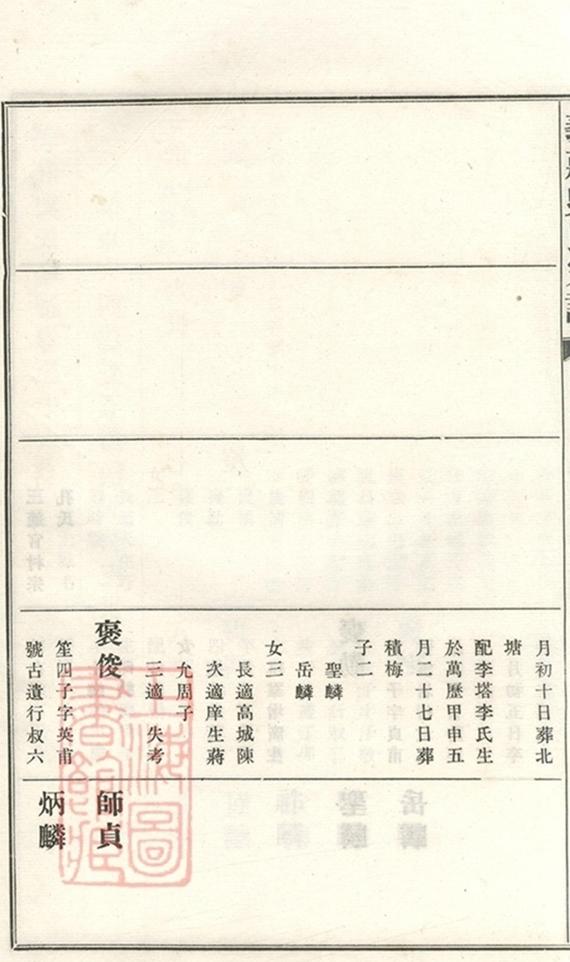 月初十日葬北
塘
配李塔李氏生
於萬歷甲申五
月二十七日葬
積梅
子二
聖麟
岳麟
女三
長適高城陳
次適庠生蔣
允周子
三適　失考
褒俊
笙四子字英甫
號古遺行叔六
師貞
炳麟
上海圖書館藏